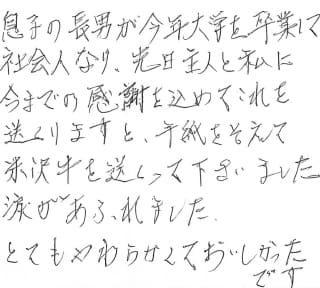 息子の長男が今年大学を卒業して
社会人なり、先日主人と私に
今までの感謝を込めてこれを
送くりますと、手紙をそえて
米沢牛を送くって下さいました
涙があふれました。
とてもやわらかくておいしかった
です